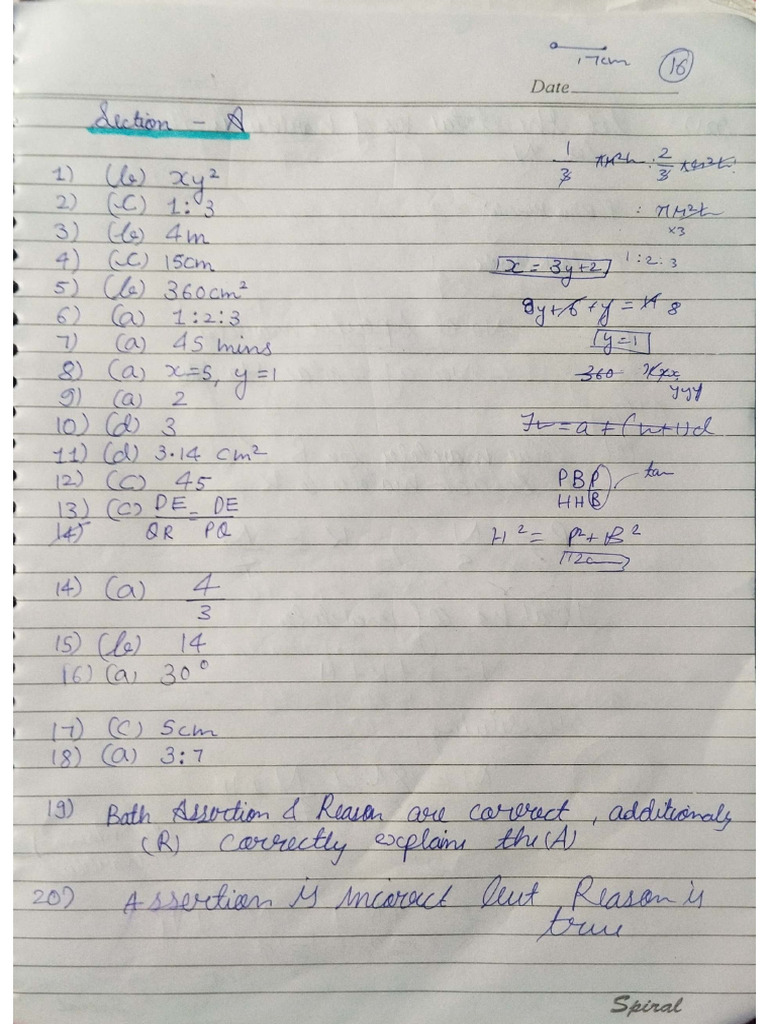 17cm
16
Date
Section - A
1) (b) xy²
2) (c) 1:3
3) (b) 4m
4) (c) 15cm
5) (b) 360cm²
6) (a) 1:2:3
7) (a) 45 mins
8) (a) x=5, y=1
9) (a) 2
10) (d) 3
11) (d) 3.14 cm²
12) (c) 45
13) (c) DE = DE
14) QR PQ
14) (a) 4
3
15) (b) 14
16) (a) 30°
17) (c) 5cm
18) (a) 3:7
19) Both Assertion & Reason are cororect, additionaly
(R) correctly explains the (A)
20) Assertion is incorect but Reason is
true
1 πr²h : 2 πr²h :
3 3
: πr²h
×3
1:2:3
x = 3y+2
9y+6+y = 14 8
y=1
360
yyy
PBP tan
HHB
H² = P²+B²
Spiral